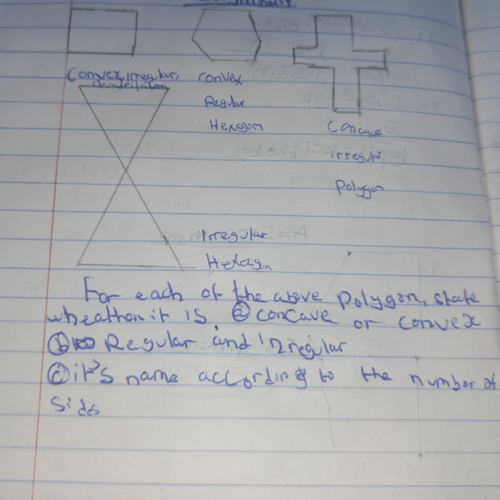 Convex, irregular,
quadrilateral
Convex
Regular
Hexagon
Concave
irregular
Polygon
Irregular
Hexagon
For each of the above Polygon, state
wheather it is ⓐ concave or convex
ⓑ Regular and Irregular
ⓒ it's name according to the number of
Side